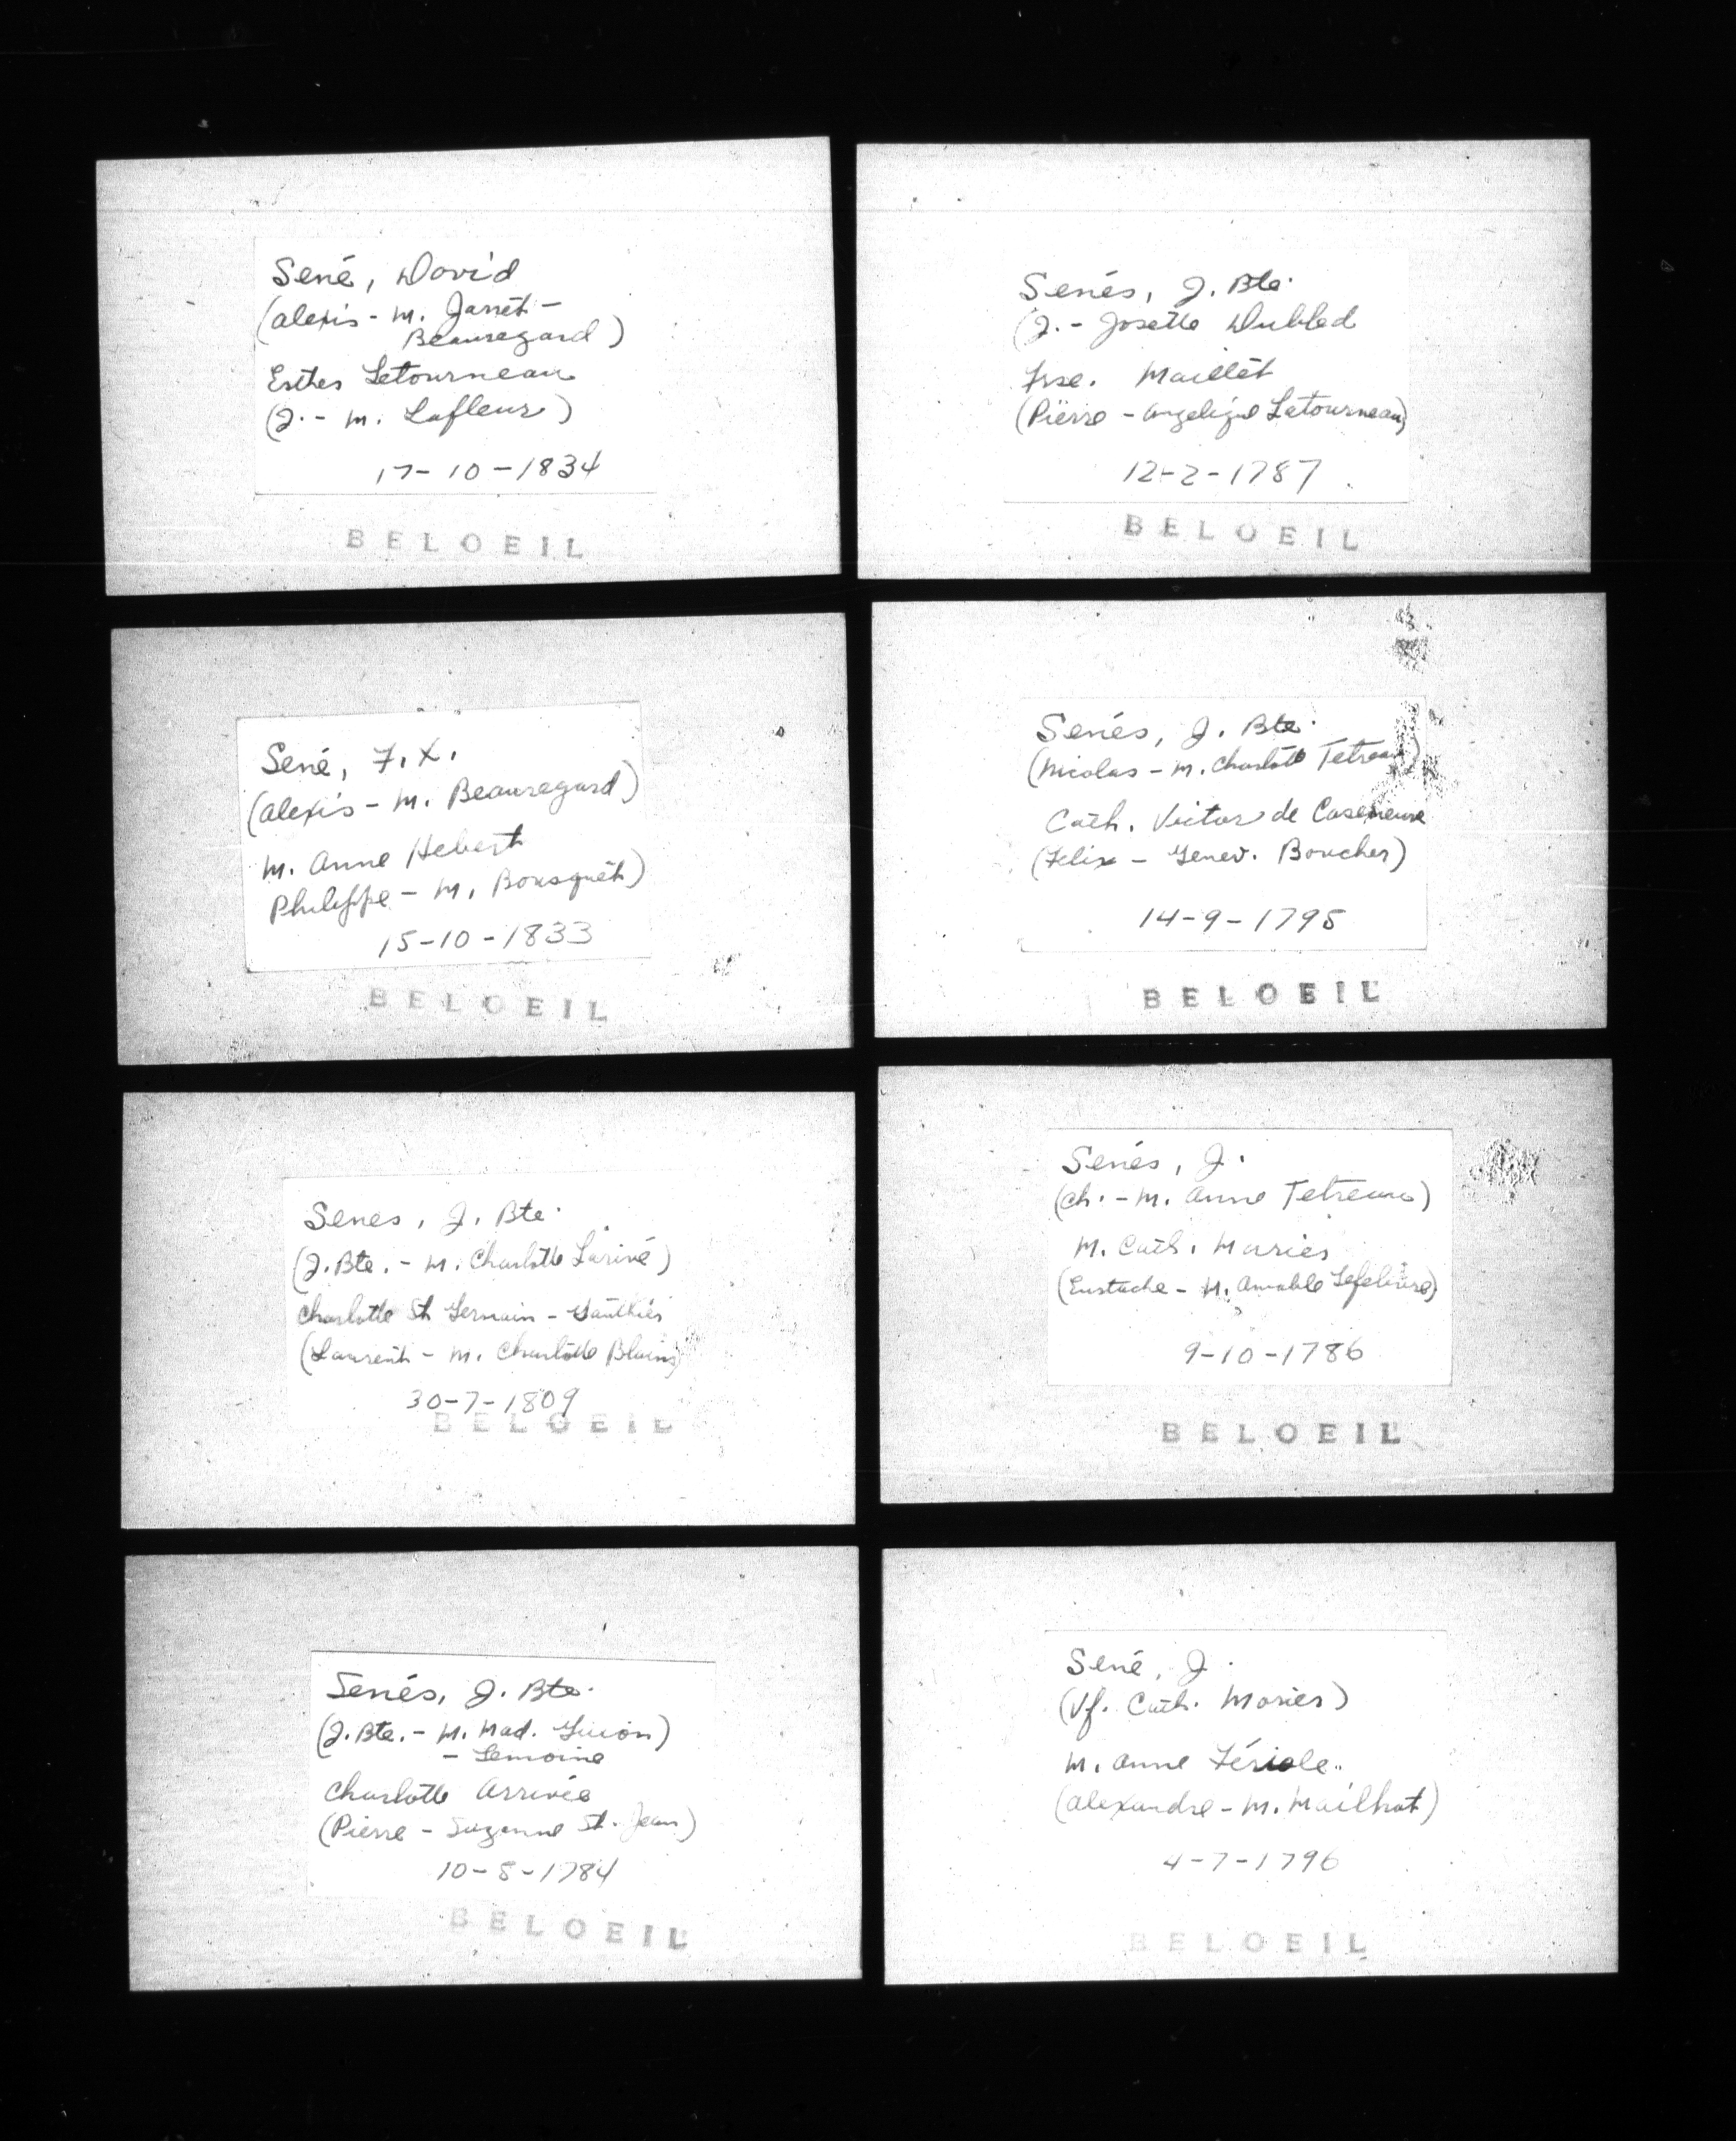 Sené, David
(Alexis - M. Jarret -
Beauregard)
Esther Letourneau
(J. - M. Lafleur)
17-10-1834
BELOEIL
Sené, F.X.
(Alexis - M. Beauregard)
M. Anne Hebert
Philippe - M. Bousquet)
15-10-1833
BELOEIL
Senes, J. Bte.
(J. Bte. - M. Charlotte Larivé)
Charlotte St Germain - Gauthier
(Laurent - M. Charlotte Blain)
30-7-1809
BELOEIL
Senés, J. Bte.
(J. Bte. - M. Mad. Guion)
- Lemoine
Charlotte Arrivée
(Pierre - Suzanne St. Jean)
10-5-1784
BELOEIL
Senés, J. Bte.
(J. - Josette Dubled
Frse. Maillet
(Pierre - Angelique Letourneau)
12-2-1787
BELOEIL
Senés, J. Bte.
(Nicolas - M. Charlotte Tetreau)
Cath. Victor de Caseneuve
(Felix - Genev. Boucher)
14-9-1795
BELOEIL
Senés, J.
(Ch. - M. Anne Tetreau)
M. Cath. Morier
(Eustache - M. Amable Lefebvre)
9-10-1786
BELOEIL
Sené, J.
(Vf. Cath. Morier)
M. Anne Fériole
(Alexandre - M. Mailhot)
4-7-1796
BELOEIL